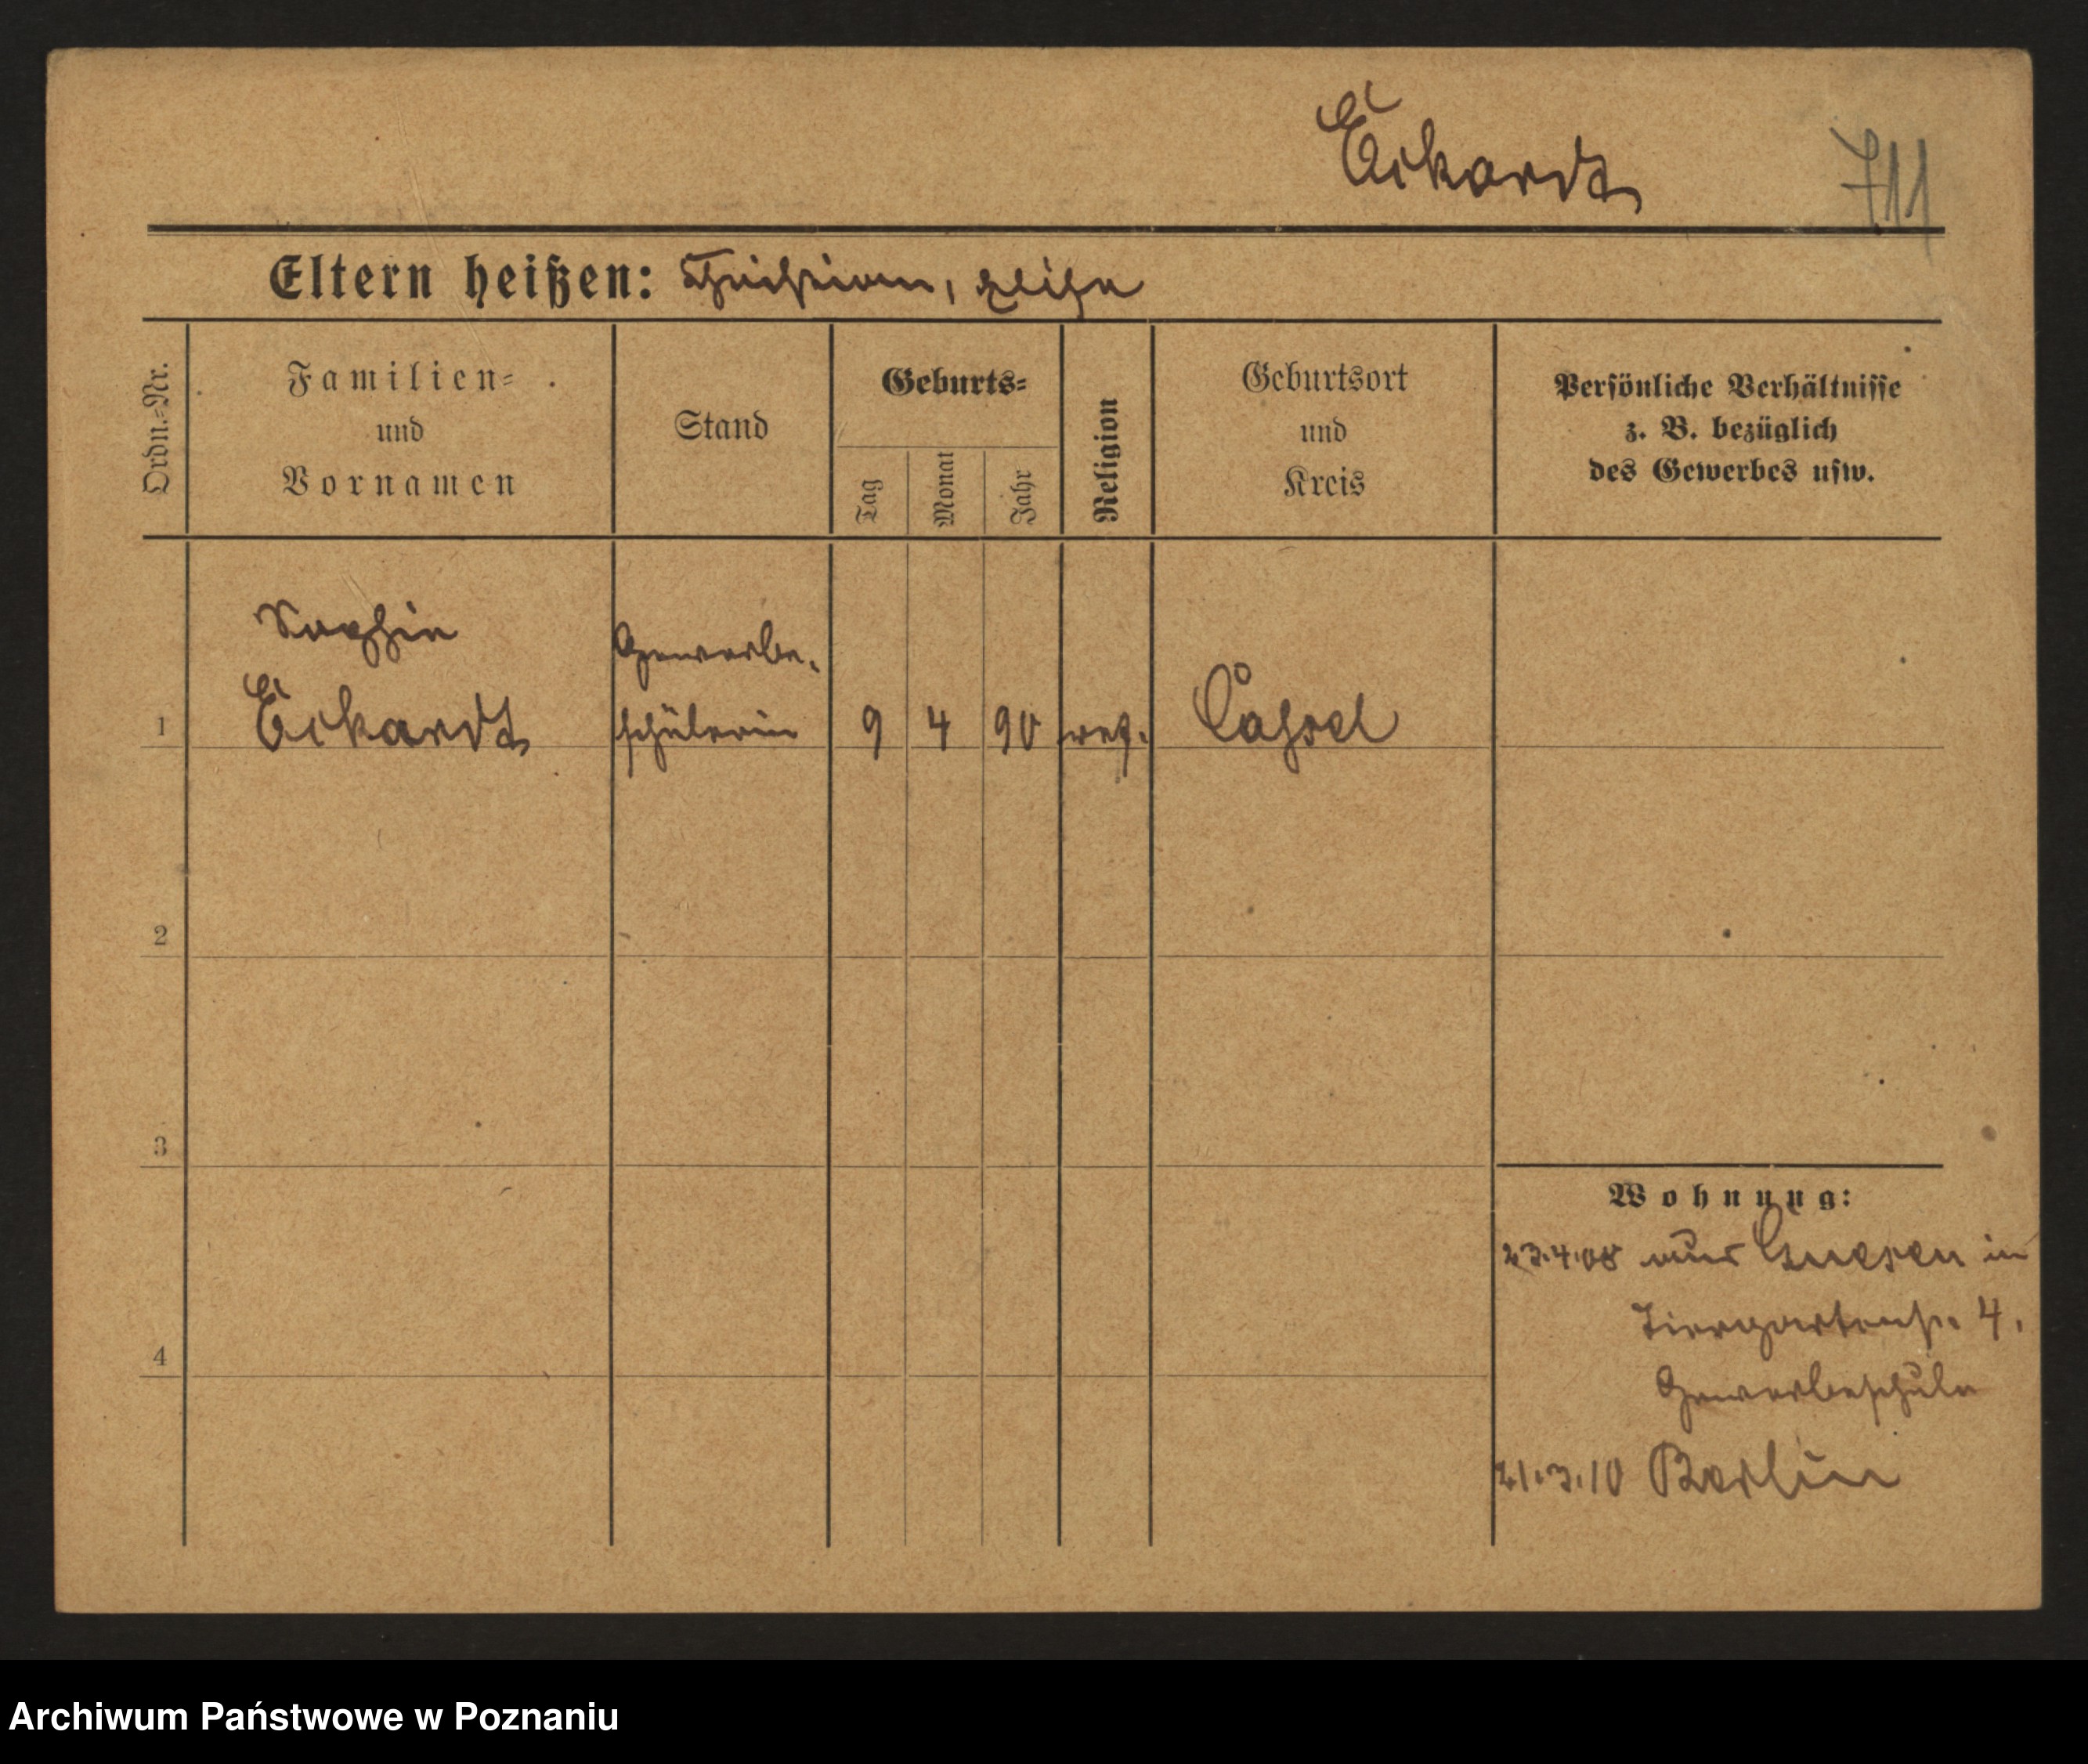 Eckardt
711
Eltern heißen: Christian, Elise
Ordn.-Nr.
Familien-
und
Vornamen
Stand
Geburts-
Tag
Monat
Jahr
Religion
Geburtsort
und
Kreis
Persönliche Verhältnisse
z. B. bezüglich
des Gewerbes usw.
Sophie
Eckardt
Gewerbe-
schülerin
1
9
4
90
ref.
Cassel
2
3
4
Wohnung:
23.4.08 aus Gnesen in
Tiergartenstr. 4,
Gewerbeschule
21.3.10 Berlin
Archiwum Państwowe w Poznaniu